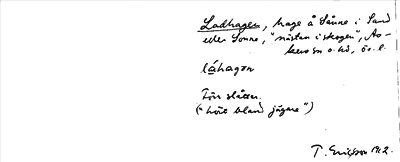 Ladhagen, hage å Sånne i Sand
eller Sonne, "nästan i skogen", As-
kers sn o. hd, ös. l.
låhagan
Förr slåtter.
("hört bland jägare")
T. Ericsson 1912.